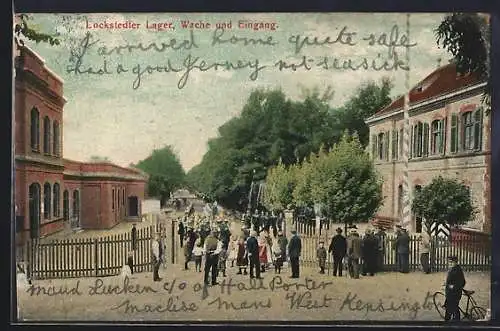 Lockstedler Lager, Wache und Eingang.
I arrived home quite safe
had a good Jerney not seasick
Maud Lucken c/o a Hall Porter
Maclise Mans West Kensington